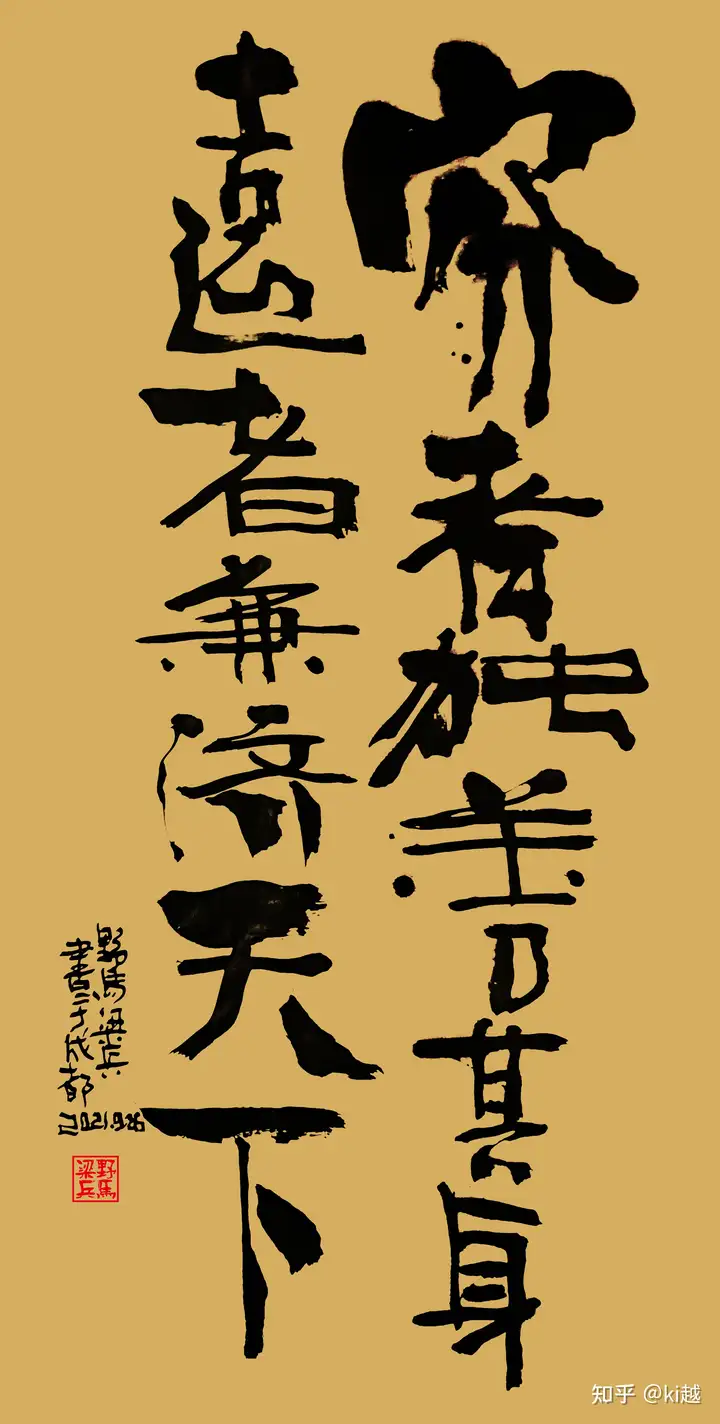 穷者独善其身
遠者兼济天下
野馬梁兵
書于成都
2021.9.26
野馬
梁兵
知乎 @ki越